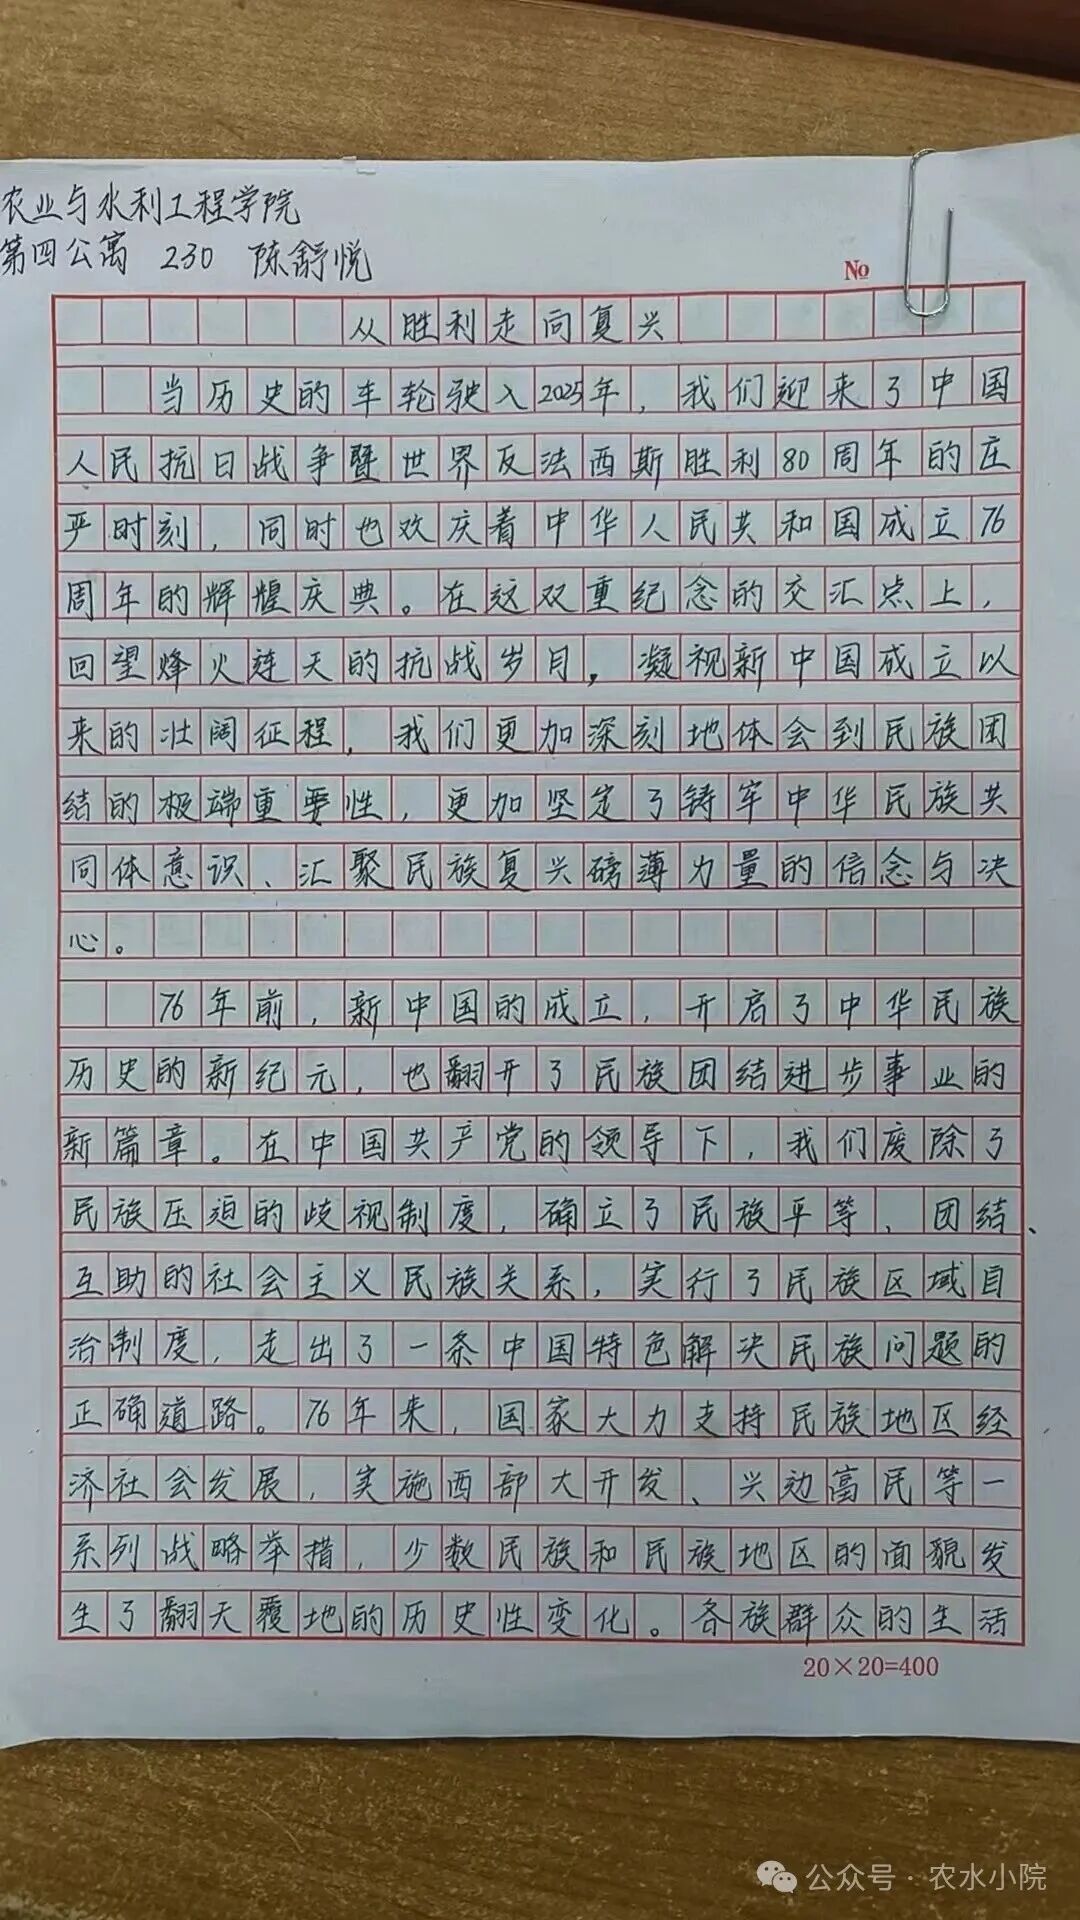 农业与水利工程学院
第四公寓 230 陈舒悦
No
从胜利走向复兴
当历史的车轮驶入2025年，我们迎来了中国
人民抗日战争暨世界反法西斯胜利80周年的庄
严时刻，同时也欢庆着中华人民共和国成立76
周年的辉煌庆典。在这双重纪念的交汇点上，
回望烽火连天的抗战岁月，凝视新中国成立以
来的壮阔征程，我们更加深刻地体会到民族团
结的极端重要性，更加坚定了铸牢中华民族共
同体意识、汇聚民族复兴磅薄力量的信念与决
心。
76年前，新中国的成立，开启了中华民族
历史的新纪元，也翻开了民族团结进步事业的
新篇章。在中国共产党的领导下，我们废除了
民族压迫的歧视制度，确立了民族平等、团结、
互助的社会主义民族关系，实行了民族区域自
治制度，走出了一条中国特色解决民族问题的
正确道路。76年来，国家大力支持民族地区经
济社会发展，实施西部大开发、兴边富民等一
系列战略举措，少数民族和民族地区的面貌发
生了翻天覆地的历史性变化。各族群众的生活
20×20=400
公众号·农水小院